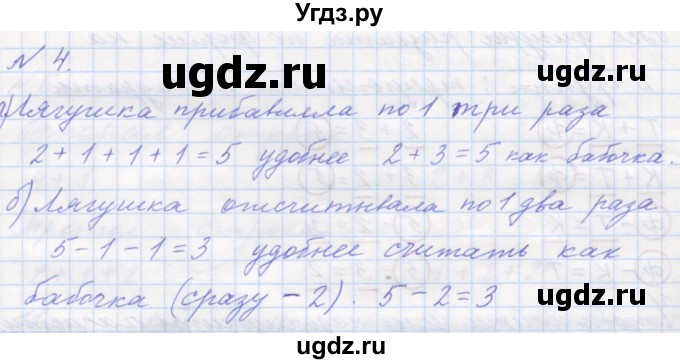 Угдз.ру
N 4.
ugdz.ru
а) Лягушка прибавила по 1 три раза
2 + 1 + 1 + 1 = 5 удобнее 2 + 3 = 5 как бабочка.
ugdz.ru
б) Лягушка отсчитывала по 1 два раза
5 - 1 - 1 = 3 удобнее считать как
бабочка (сразу - 2). 5 - 2 = 3
ugdz.ru
ugdz.ru
ugdz.ru